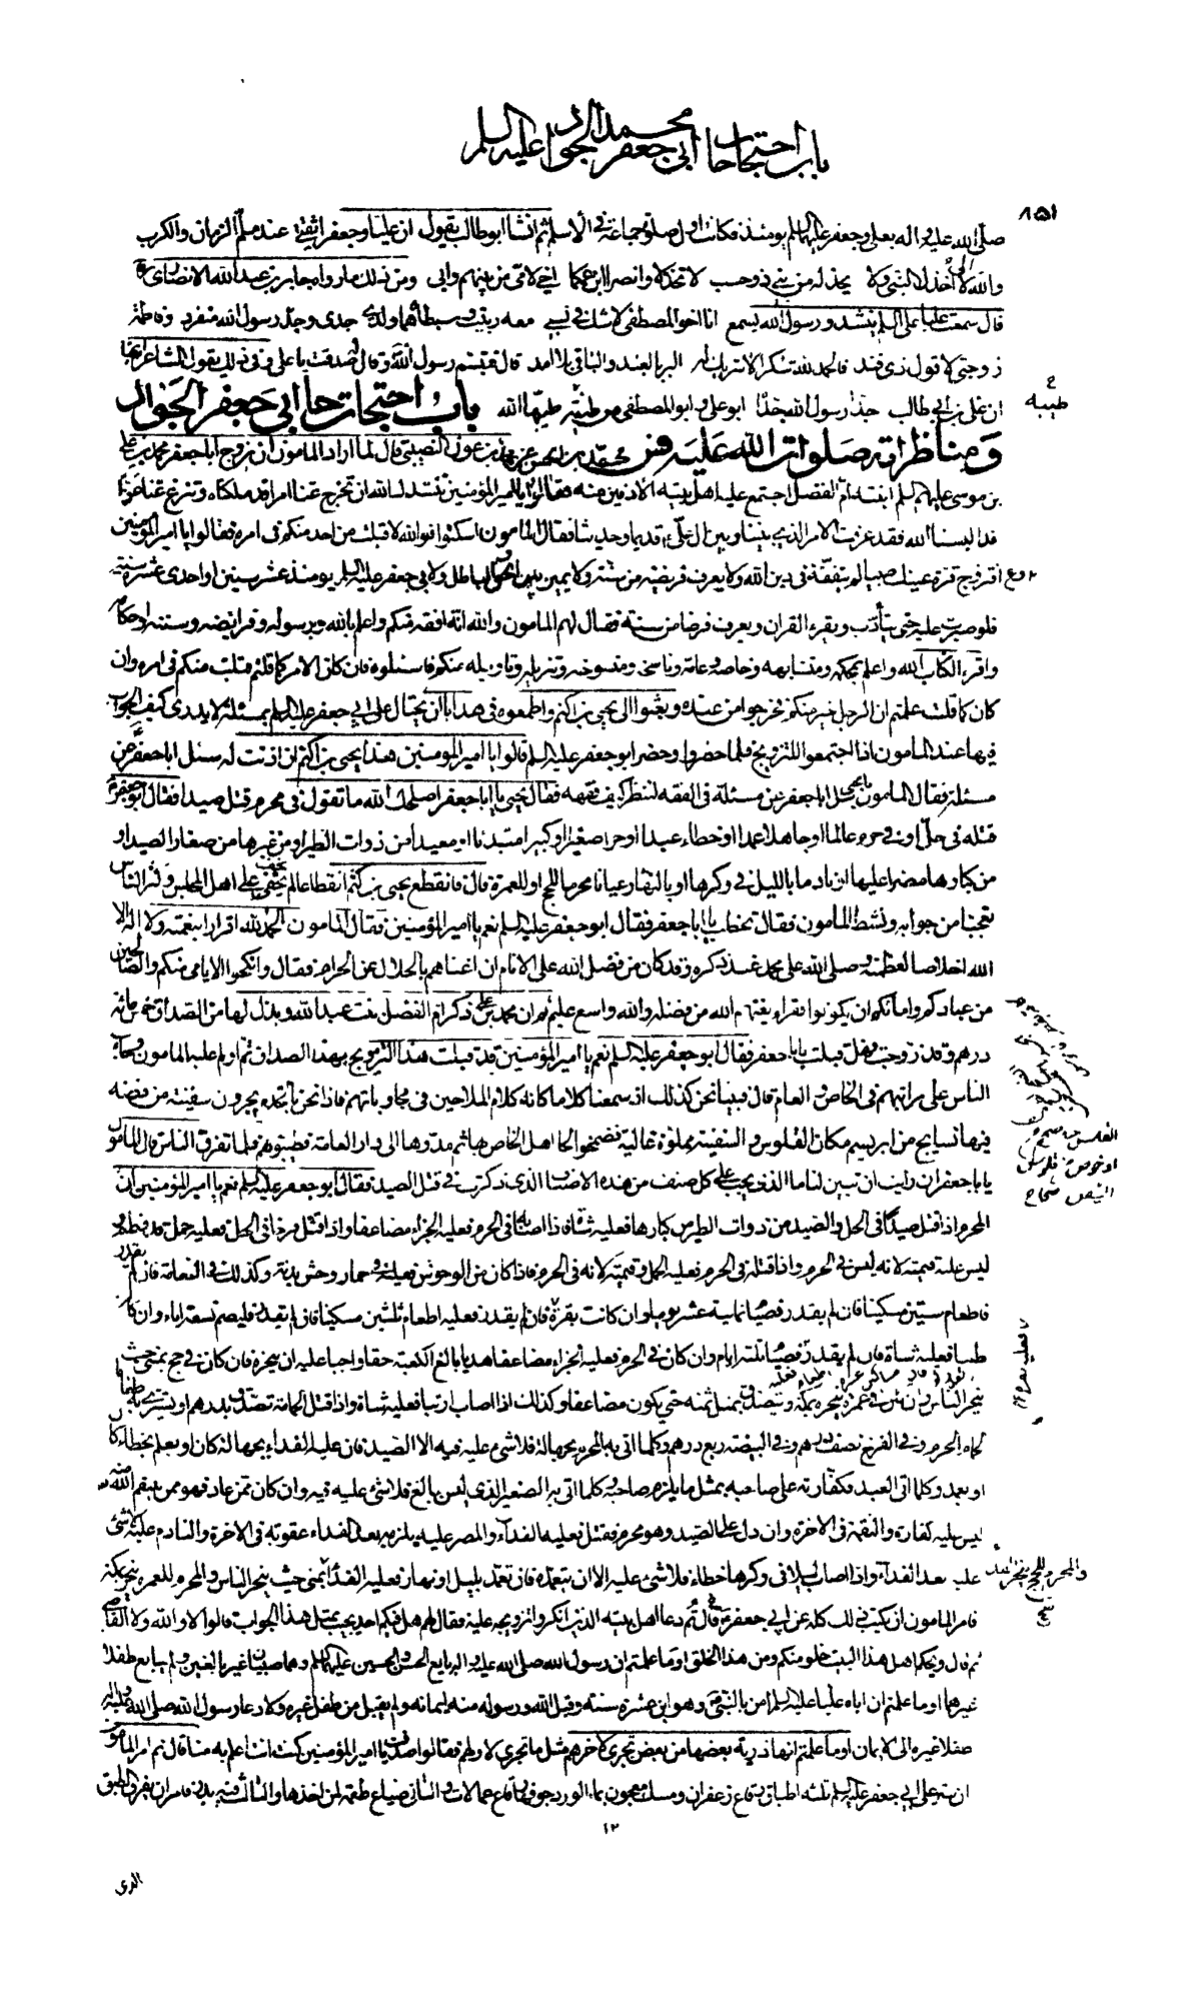 باب احتجاجات ابي جعفر محمد الجواد عليه السلم
٨٥١
صلى الله عليه واله بعلي وجعفر عليهما السلم يومئذ فكانت اول صلوة جماعة في الاسلام ثم انشا ابوطالب يقول ان عليا وجعفرا ثقتي عند ملم الزمان والكرب
والله لا اخذل النبي ولا يخذله من بني ذو حسب لا تخذلا وانصرا ابن عمكما اخي لامي من بينهم وابي ومن ذلك ما رواه جابر بن عبدالله الانصاري
قال سمعت عليا عليه السلم ينشد ورسول الله يسمع انا اخو المصطفى لا شك في نسبي معه ربيت وسبطاه هما ولدي جدي وجد رسول الله منفرد وفاطمة
زوجتي لا قول ذي فند فالحمد لله شكرا لا شريك له البر بالعبد والباقي بلا امد قال فتبسم رسول الله وقال صدقت يا علي وفي ذلك يقول الشاعر ايضا
ان علي بن ابي طالب جدا رسول الله جداه ابو علي وابو المصطفى من طينة طيبها الله باب احتجاجات ابي جعفر الجواد
طيبه
ومناظراته صلوات الله عليه محمد بن الحسن عن محمد بن عون النصيبي قال لما اراد المامون ان يزوج ابا جعفر محمد بن علي
بن موسى عليهم السلم ابنته ام الفضل اجتمع عليه اهل بيته الادنين منه فقالوا يا امير المؤمنين ننشدك الله ان تخرج عنا امرا قد ملكناه وتنزع عنا عزا
قد البسنا الله فقد عرفت الامر الذي بيننا وبين آل علي قديما وحديثا فقال المامون اسكتوا فوالله لا قبلت من احد منكم في امره فقالوا يا امير المؤمنين
افتزوج قرة عينك صبيا لم يتفقه في دين الله ولا يعرف فريضة من سنة ولا يميز بين الحق والباطل ولابي جعفر عليه السلم يومئذ عشر سنين او احدى عشرة سنة
فلو صبرت عليه حتى يتادب ويقرء القران ويعرف فرضا من سنة فقال لهم المامون والله انه افقه منكم واعلم بالله وبرسوله وفرائضه وسننه واحكامه
واقرء لكتاب الله واعلم بمحكمه ومتشابهه وخاصه وعامه وناسخه ومنسوخه وتنزيله وتاويله منكم فاسئلوه فان كان الامر كما قلتم قبلت منكم في امره وان
كان كما قلت علمتم ان الرجل خير منكم فخرجوا من عنده وبعثوا الى يحيى بن اكثم واطمعوه في هدايا ان يحتال على ابي جعفر عليه السلم بمسئلة لا يدري كيف الجواب
فيها عند المامون اذا اجتمعوا للتزويج فلما حضروا وحضر ابو جعفر عليه السلم قالوا يا امير المؤمنين هذا يحيى بن اكثم ان اذنت له سئل ابا جعفر عن
مسئلة فقال المامون يا يحيى سل ابا جعفر عن مسئلة في الفقه لننظر كيف فقهه فقال يحيى يا ابا جعفر اصلحك الله ما تقول في محرم قتل صيدا فقال ابو جعفر
قتله في حل او في حرم عالما او جاهلا عمدا او خطاء عبدا او حرا صغيرا او كبيرا مبتدئا او معيدا من ذوات الطير او من غيرها من صغار الصيد او
من كبارها مصرا عليها او نادما بالليل في وكرها او بالنهار عيانا محرما للحج او للعمرة قال فانقطع يحيى بن اكثم انقطاعا لم يخف على اهل المجلس وكثر الناس
تعجبا من جوابه ونشط المامون فقال تخطب يا ابا جعفر فقال ابو جعفر عليه السلم نعم يا امير المؤمنين فقال المامون الحمد لله اقرارا بنعمته ولا اله الا
الله اخلاصا لعظمته وصلى الله على محمد عند ذكره وقد كان من فضل الله على الانام ان اغناهم بالحلال عن الحرام فقال وانكحوا الايامى منكم والصالحين
من عبادكم وامائكم ان يكونوا فقراء يغنهم الله من فضله والله واسع عليم ثم ان محمد بن علي ذكر ام الفضل بنت عبد الله وبذل لها من الصداق خمسمائة
درهم وقد زوجت فهل قبلت يا ابا جعفر فقال ابو جعفر عليه السلم نعم يا امير المؤمنين قد قبلت هذا التزويج بهذا الصداق ثم اولم عليه المامون وجاء
الناس على مراتبهم في الخاص والعام قال فبينا نحن كذلك اذ سمعنا كلاما كانه كلام الملاحين في محاوباتهم فاذا نحن بالخدم يجرون سفينة من فضة
فيها نسايج من ابريسم مكان القلوس والسفينة مملوة غالية فضمخوا لحا اهل الخاص بها ثم مدوها الى دار العامة فطيبوهم فلما تفرق الناس قال المامون
يا ابا جعفر ان رايت ان تبين لنا ما الذي يجب على كل صنف من هذه الاصناف الذي ذكرت في قتل الصيد فقال ابو جعفر عليه السلم نعم يا امير المؤمنين ان
المحرم اذا قتل صيدا في الحل والصيد من ذوات الطير من كبارها فعليه شاة فاذا اصابه في الحرم فعليه الجزاء مضاعفا واذا قتل فرخا في الحل فعليه حمل قد فطم و
ليس عليه قيمته لانه ليس في الحرم واذا قتله في الحرم فعليه الحمل وقيمته لانه في الحرم فاذا كان من الوحوش فعليه في حمار وحش بدنة وكذلك في النعامة فان لم يقدر
فاطعام ستين مسكينا فان لم يقدر فصيام ثمانية عشر يوما وان كانت بقرة فان لم يقدر فعليه اطعام ثلثين مسكينا فان لم يقدر فليصم تسعة ايام وان كان
ظبيا فعليه شاة فان لم يقدر فصيام ثلثة ايام وان كان في الحرم فعليه الجزاء مضاعفا هديا بالغ الكعبة حقا واجبا عليه ان ينحره فان كان في حج بمنى حيث
ينحر الناس وان كان في عمرة ينحره بمكة ويتصدق بمثل ثمنه حتى يكون مضاعفا وكذلك اذا اصاب ارنبا فعليه شاة واذا قتل الحمامة تصدق بدرهم او يشتري به طعاما
لحمام الحرم وفي الفرخ نصف درهم وفي البيضة ربع درهم وكلما اتى به المحرم بجهالة فلا شيء عليه فيه الا الصيد فان عليه الفداء بجهالة كان او بعلم بخطاء كان
او بعمد وكلما اتى العبد فكفارته على صاحبه بمثل ما يلزم صاحبه وكلما اتى به الصغير الذي ليس ببالغ فلا شيء عليه فيه وان كان ممن عاد فهو ممن ينتقم الله منه
ليس عليه كفارة والنقمة في الاخرة وان دل على الصيد وهو محرم فقتل فعليه الفداء والمصر عليه يلزمه بعد الفداء عقوبة في الاخرة والنادم عليه لا شيء
عليه بعد الفداء واذا اصاب ليلا في وكرها خطاء فلا شيء عليه الا ان يتعمده فان تعمد بليل او نهار فعليه الفداء بمنى حيث ينحر الناس والمحرم للعمرة ينحر بمكة
فامر المامون ان يكتب ذلك كله عن ابي جعفر قال ثم دعا اهل بيته الذين انكروا تزويجه عليه فقال لهم هل فيكم احد يجيب بمثل هذا الجواب قالوا لا والله ولا القاضي
ثم قال ويحكم اهل هذا البيت خلو منكم ومن هذا الخلق اوما علمتم ان رسول الله صلى الله عليه واله بايع الحسن والحسين عليهما السلم وهما صبيان غير بالغين ولم يبايع طفلا
غيرهما اوما علمتم ان اباه عليا عليه السلم امن بالنبي وهو ابن عشرة سنة وقبل الله ورسوله منه ايمانه ولم يقبل من طفل غيره ولا دعا رسول الله صلى الله عليه واله
طفلا غيره الى الايمان اوما علمتم انها ذرية بعضها من بعض تجري لاخرهم مثل ما تجري لاولهم فقالوا صدقت يا امير المؤمنين كنت انت اعلم به منا قال ثم امر المامون
ان ينثر على ابي جعفر عليه السلم ثلثة اطباق رقاع زعفران ومسك معجون بماء الورد جوفها رقاع عمالات والثاني ضياع طعمة لمن اخذها والثالث فيه بدر فامر ان يفرق الطبق
١٢
الذي